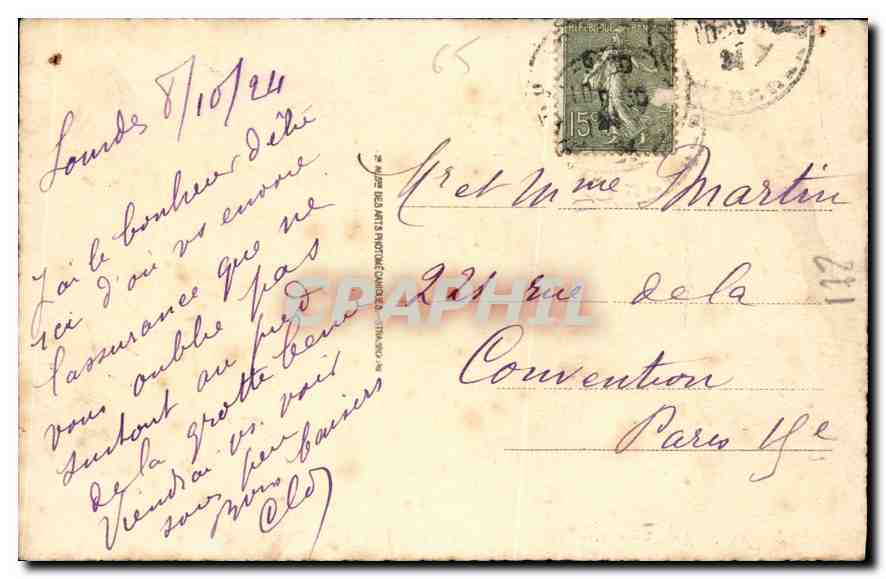 65
RÉPUBLIQUE FRANÇAISE
15c
Lourdes 8/10/24
J'ai le bonheur d'être
ici d'où vs envoie
l'assurance que ne
vous oublie pas
surtout au pied
de la grotte bénie
Viendrai vs voir
sous peu
Bons baisers
Clo
Mr et Mme Martin
221 rue de la
Convention
Paris 15e
112
DES ARTS PHOTOMECANIQUES
CPARAPHIL